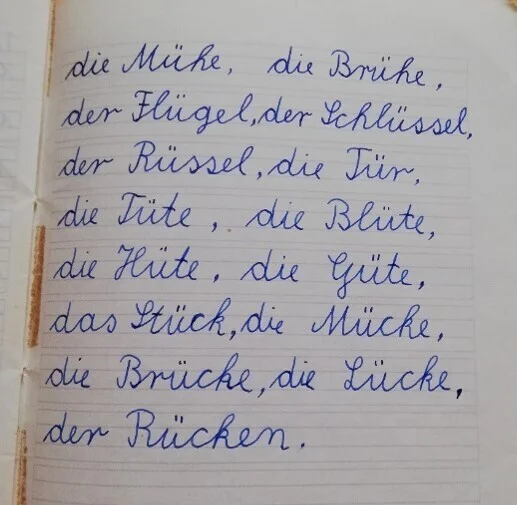 die Mühe, die Brühe,
der Flügel, der Schlüssel,
der Rüssel, die Tür,
die Tüte, die Blüte,
die Hüte, die Güte,
das Stück, die Mücke,
die Brücke, die Lücke,
der Rücken.